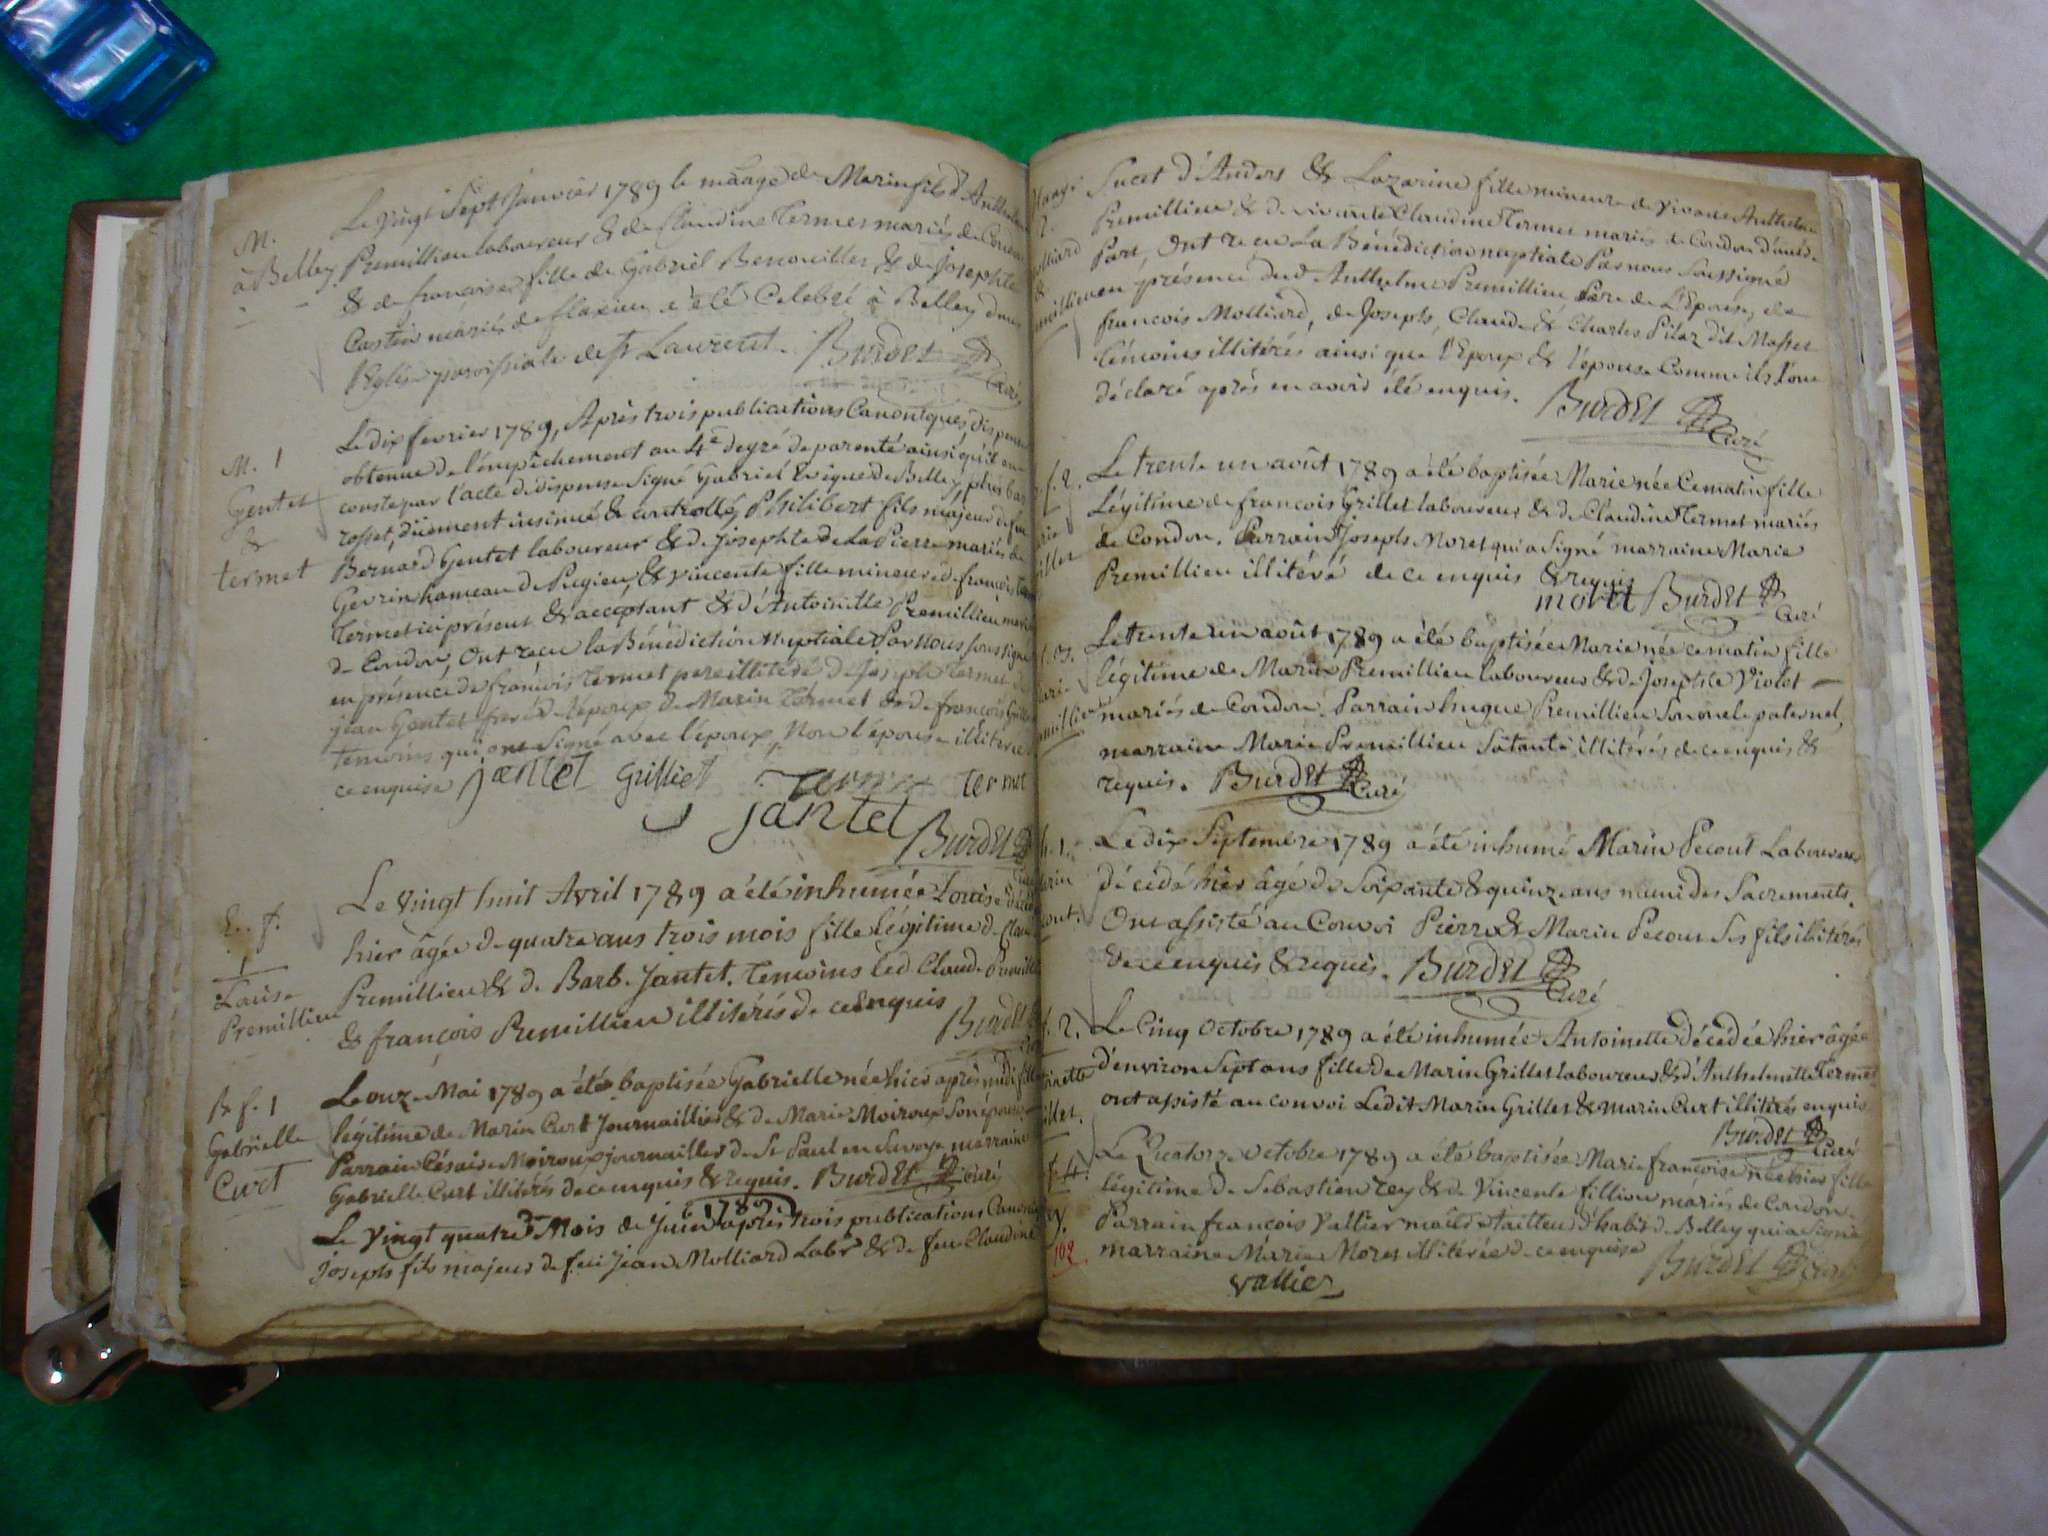 M.
à Belley
Le vingt Sept Janvier 1789 le mariage de Marin fils d'Anthelme
Premillieu laboureur & de Claudine Termet mariés de Condon
& de françoise fille de Gabriel Benouiller & de Josephte
Castin mariés de flaxieu a été Celebré à Belley dans
l'Eglise paroissiale de St Laurent. Burdet Curé
M. 1
Gentet
&
termet
Le dix fevrier 1789, Après trois publications Canoniques, dispense
obtenue de l'empêchement au 4e degré de parenté ainsi qu'il
conste par l'acte de dispense Signé Gabriel Evêque de Belley, plus bas
rosset, düement insinué & controllé, Philibert fils majeur de feu
Bernard Gentet laboureur & de Josephte de La Pierre mariés de
Gevrin hameau de Pugieu, & vincente fille mineure de françois
Termet ici présent & acceptant & d'Antoinette Premillieu mariés
de Condon, Ont reçu la Bénédiction Nuptiale Par nous soussigné
en présence de françois Termet pere illitéré de Joseph Termet de
jean Gentet frere de l'époux, de Marin Termet & de françois Grillet
temoins qui ont Signé avec l'époux, Non l'épouse illiterée
ce enquise jantet Grilliet termet
jantet
Burdet
E. f.
1
Louise
Premillieu
Le vingt huit Avril 1789 a été inhumée Louise décédée
hier âgée de quatre ans trois mois fille légitime de Claude
Premillieu & de Barb. Jantet. Temoins led Claude Premillieu
& françois Premillieu illitérés de ce enquis Burdet
B. f. 1
Gabrielle
Curt
Le onze Mai 1789 a été baptisée Gabrielle née hier après midi fille
légitime de Marin Curt Journaillier & de Marie Moiroux son épouse
Parrain Césaire Moiroux journaillier de St Paul en Savoye marraine
Gabrielle Curt illitérés de ce enquis & requis. Burdet Curé
1789
Le vingt quatre Mois de Juin après trois publications Canoniques
Joseph fils majeur de feu Jean Molliard Labr & de feu Claudine
Sucet d'Anders & Lazarine fille mineure de vivant Anthelme
Premillieu & de vivante Claudine Termet mariés de Condon d'autre
Part, Ont reçu La Bénédiction nuptiale Par nous Soussigné
en présence dud Anthelme Premillieu Père de L'Epouse, de
françois Molliard, de Joseph, Claude & Charles Pilaz dit Masset
témoins illitérés ainsi que l'Epoux & l'épouse Comme ils l'ont
déclaré après en avoir été enquis.
Burdet Curé
f. 2.
Le trente un août 1789 a été baptisée Marie née Ce matin fille
Légitime de françois Grillet laboureur & de Claudine Termet mariés
de Condon. Parrain Joseph Moret qui a Signé marraine Marie
Premillieu illitéré de ce enquis & requis
moret Burdet Curé
Le trente un août 1789 a été baptisée Marie née ce matin fille
légitime de Marin Premillieu laboureur & de Josephte Violet
mariés de Condon. Parrain hugue Premillieu Son oncle paternel,
marraine Marie Premillieu Sa tante, illitérés de ce enquis &
requis. Burdet Curé
Le dix Septembre 1789 a été inhumé Marin Pecout Laboureur
décédé hier âgé de Soixante & quinze ans muni des Sacrements.
Ont assisté au Convoi Pierre & Marin Pecout Ses fils illitérés
de ce enquis & requis. Burdet Curé
f. 2.
Le Cinq Octobre 1789 a été inhumée Antoinette décédée hier âgée
d'environ Sept ans fille de Marin Grillet laboureur & d'Anthelmette Termet
ont assisté au convoi Ledit Marin Grillet & Marin Curt illitérés enquis
Burdet Curé
f. 4.
Le Quatorze Octobre 1789 a été baptisée Marie françoise née hier fille
légitime de Sebastien rey & de Vincente fillion mariés de Condon.
Parrain françois Vallier maître tailleur d'habit de Belley qui a Signé
102
marraine Marie Moret illitérée de ce enquise Burdet Curé
vallier